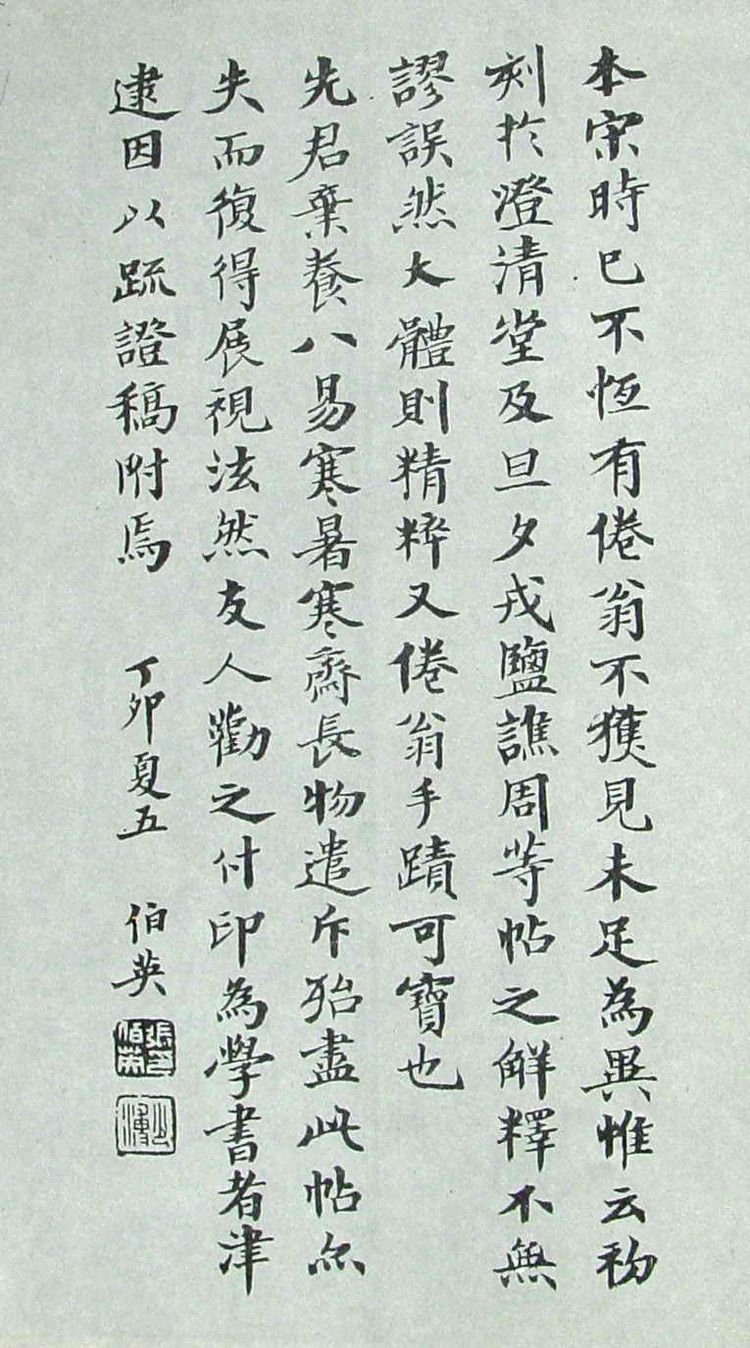 本宋時已不恆有倦翁不獲見未足為異惟云初
刻於澄清堂及旦夕戎鹽譙周等帖之解釋不無
謬誤然大體則精粹又倦翁手蹟可寶也
先君棄養八易寒暑寒齋長物遣斥殆盡此帖亦
失而復得展視泫然友人勸之付印為學書者津
逮因以疏證稿附焉 丁卯夏五 伯英
張伯英